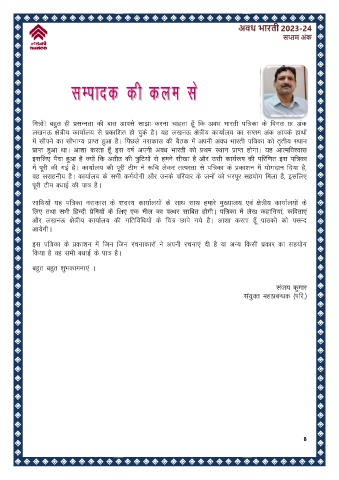 अवध भारती 2023-24
सप्तम अंक
हडको
hudco
सम्पादक की कलम से
मित्रों! बहुत ही प्रसन्नता की बात आपसे साझा करना चाहता हूँ कि अवध भारती पत्रिका के विगत छः अंक
लखनऊ क्षेत्रीय कार्यालय से प्रकाशित हो चुके है। यह लखनऊ क्षेत्रीय कार्यालय का सप्तम अंक आपके हाथों
में सौंपने का सौभाग्य प्राप्त हुआ है। पिछले नराकास की बैठक में अपनी अवध भारती पत्रिका को तृतीय स्थान
प्राप्त हुआ था। आशा करता हूँ इस वर्ष अपनी अवध भारती को प्रथम स्थान प्राप्त होगा। यह आत्मविश्वास
इसलिए पैदा हुआ है क्यों कि अतीत की त्रुटियों से हमने सीखा है और उसी कार्यरूप की परिणित इस पत्रिका
में पूरी की गई है। कार्यालय की पूरी टीम ने रूचि लेकर तत्परता से पत्रिका के प्रकाशन में योगदान दिया है,
वह सराहनीय है। कार्यालय के सभी कर्मयोगी और उनके परिवार के जनों को भरपूर सहयोग मिला है, इसलिए
पूरी टीम बधाई की पात्र है।
साथियों यह पत्रिका नराकास के सदस्य कार्यालयों के साथ साथ हमारे मुख्यालय एवं क्षेत्रीय कार्यालयों के
लिए तथा सभी हिन्दी प्रेमियों के लिए एक मील का पत्थर साबित होगी। पत्रिका में लेख कहानियां, कविताएं
और लखनऊ क्षेत्रीय कार्यालय की गतिविधियों के चित्र छापे गये है। आशा करता हूँ पाठको को पसन्द
आयेगी।
इस पत्रिका के प्रकाशन में जिन जिन रचनाकारों ने अपनी रचनाएं दी है या अन्य किसी प्रकार का सहयोग
किया है वह सभी बधाई के पात्र है।
बहुत बहुत शुभकामनाएं ।
संजय कुमार
संयुक्त महाप्रबन्धक (परि.)
8